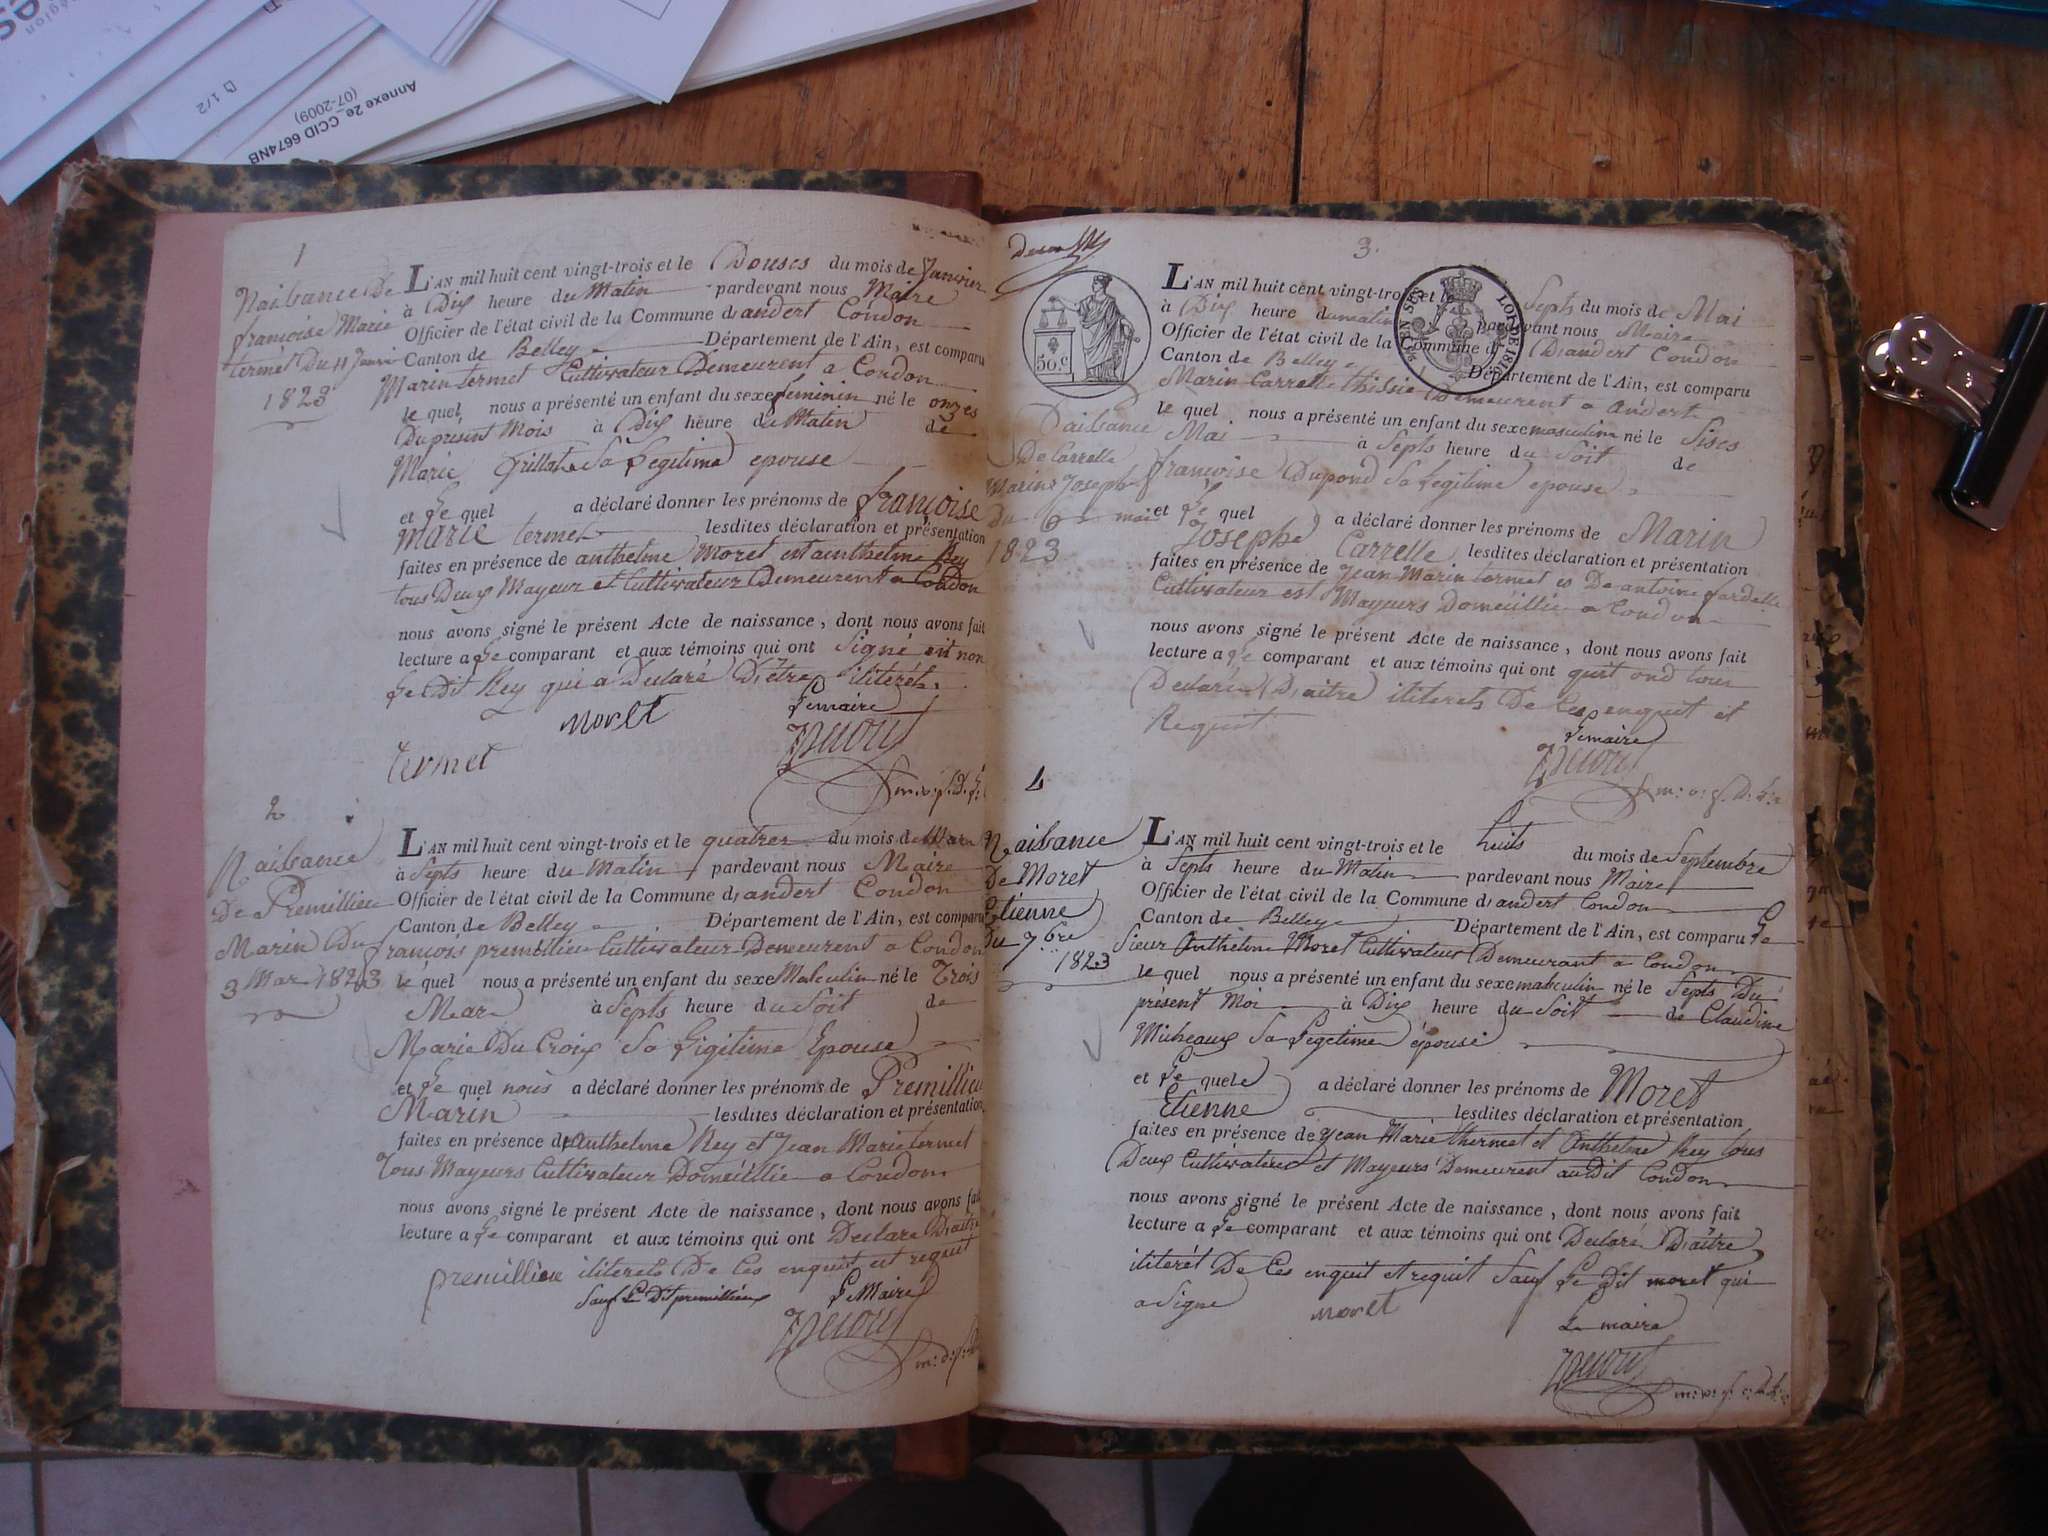 Annexe 2e_CCID 6674NB
(07-2009)
1/2
1
Naisance De
françoise Marie
termet Du 11 Janvi
1823
L'AN mil huit cent vingt-trois et le Douses du mois de Janvier
à Dix heure du Matin pardevant nous Maire
Officier de l'état civil de la Commune d'andert Condon
Canton de Belley Département de l'Ain, est comparu
Marin termet Cultivateur Demeurent a Condon
le quel nous a présenté un enfant du sexe feminin né le onzes
Du présent Mois à Dix heure du Matin de
Marie Grillot Sa Legitime epouse
et Le quel a déclaré donner les prénoms de françoise
Marie termet lesdites déclaration et présentation
faites en présence de anthelme Moret est anthelme Rey
tous Deux Mayeur et Cultivateur Demeurent a Condon
nous avons signé le présent Acte de naissance, dont nous avons fait
lecture a Le comparant et aux témoins qui ont Signé sit non
Le Dit Rey qui a Declaré D'être iliterét.
Le maire
moret
termet
2
Naisance
De Premillieu
Marin Du
3 Mar 1823
L'AN mil huit cent vingt-trois et le quatres du mois de Mars
à Septs heure du Matin pardevant nous Maire
Officier de l'état civil de la Commune d'andert Condon
Canton de Belley Département de l'Ain, est comparu
françois premillieu Cultivateur Demeurent a Condon
le quel nous a présenté un enfant du sexe Masculin né le Trois
Mars à Septs heure du Soit de
Marie Du Croix Sa Ligitime Epouse
et Le quel nous a déclaré donner les prénoms de Premillieu
Marin lesdites déclaration et présentation
faites en présence de anthelme Rey et Jean Marie termet
Tous Mayeurs Cultivateur Domeillie a Condon
nous avons signé le présent Acte de naissance, dont nous avons fait
lecture a Le comparant et aux témoins qui ont Declaré D'aitre
premillieu iliterets De Ces enquit est requit
Sauf Le Dit premillieu Le Maire
3.
50 C.
LOI DE 181
Naisance
De Carrelle
Marin Joseph
Du 6 mai
1823
L'AN mil huit cent vingt-trois et le Septs du mois de Mai
à Dix heure du matin pardevant nous Maire
Officier de l'état civil de la Commune d' D'andert Condon
Canton de Belley Département de l'Ain, est comparu
Marin Carrelle thissié Demeurent a andert
le quel nous a présenté un enfant du sexe masculin né le Sises
Mai à Septs heure du Soit de
françoise Dupond Sa Legitime epouse
et Le quel a déclaré donner les prénoms de Marin
Josephe Carrelle lesdites déclaration et présentation
faites en présence de Jean Marin termet es De antoine fardelle
Cultivateur est Mayeurs Domeillie a Condon
nous avons signé le présent Acte de naissance, dont nous avons fait
lecture a Le comparant et aux témoins qui ont quit ond tous
Declaré D'aitre iliterets De Ces enquit et
Requit
Le maire
4
Naisance
De Moret
Etienne
Du 7bre
1823
L'AN mil huit cent vingt-trois et le huits du mois de Septembre
à Septs heure du Matin pardevant nous Maire
Officier de l'état civil de la Commune d'andert Condon
Canton de Belley Département de l'Ain, est comparu Le
Sieur Anthelme Moret Cultivateur Demeurant a Condon
le quel nous a présenté un enfant du sexe masculin né le Septs Du
présent Moi à Dix heure du Soit de Claudine
Micheaux Sa Legetime épouse
et Le quele a déclaré donner les prénoms de Moret
Etienne lesdites déclaration et présentation
faites en présence de Jean Marie thermet et Anthelme Rey tous
Deux Cultivateur et Mayeurs Demeurent audit Condon
nous avons signé le présent Acte de naissance, dont nous avons fait
lecture a Le comparant et aux témoins qui ont Declaré D'aitre
iliterét De Ces enquit et requit Sauf Le Dit moret qui
a Signe moret
Le maire